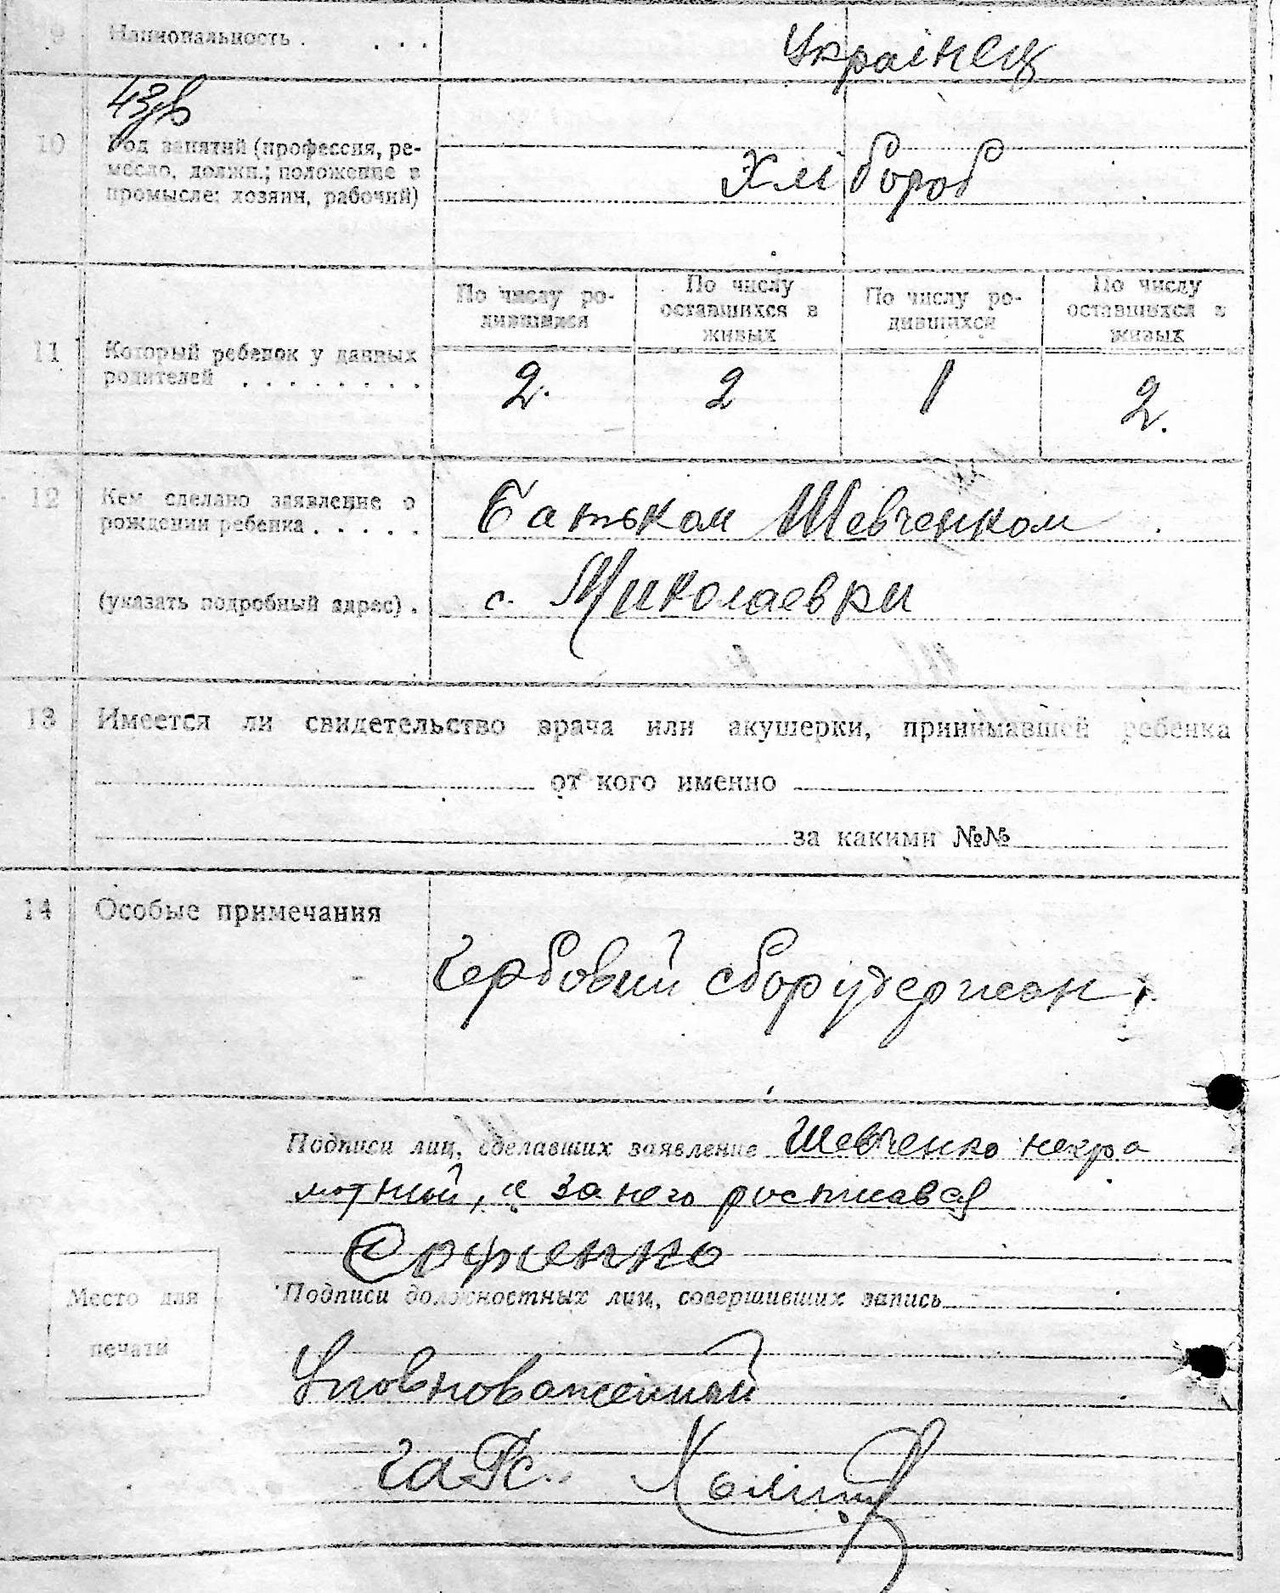 9 Национальность . . . . Украінец
43дв
10 Род занятий (профессия, ре-
месло, должн.; положение в
промысле: хозяин, рабочий)
Хлібороб
По числу ро-
дившихся
По числу
оставшихся в
живых
По числу ро-
дившихся
По числу
оставшихся в
живых
11 Который ребенок у данных
родителей . . . . . . . .
2. 2 1 2.
12 Кем сделано заявление о
рождении ребенка . . . . .
Батьком Шевченком
(указать подробный адрес) . с. Миколаевки
13 Имеется ли свидетельство врача или акушерки, принимавшей ребенка
от кого именно
за какими №№
14 Особые примечания
Гербовий сбор удержан
Подписи лиц, сделавших заявление Шевченко негра
мотний, а за него росписався
Софиенко
Место для
печати
Подписи должностных лиц, совершивших запись
Уповноваженний
гаРс.